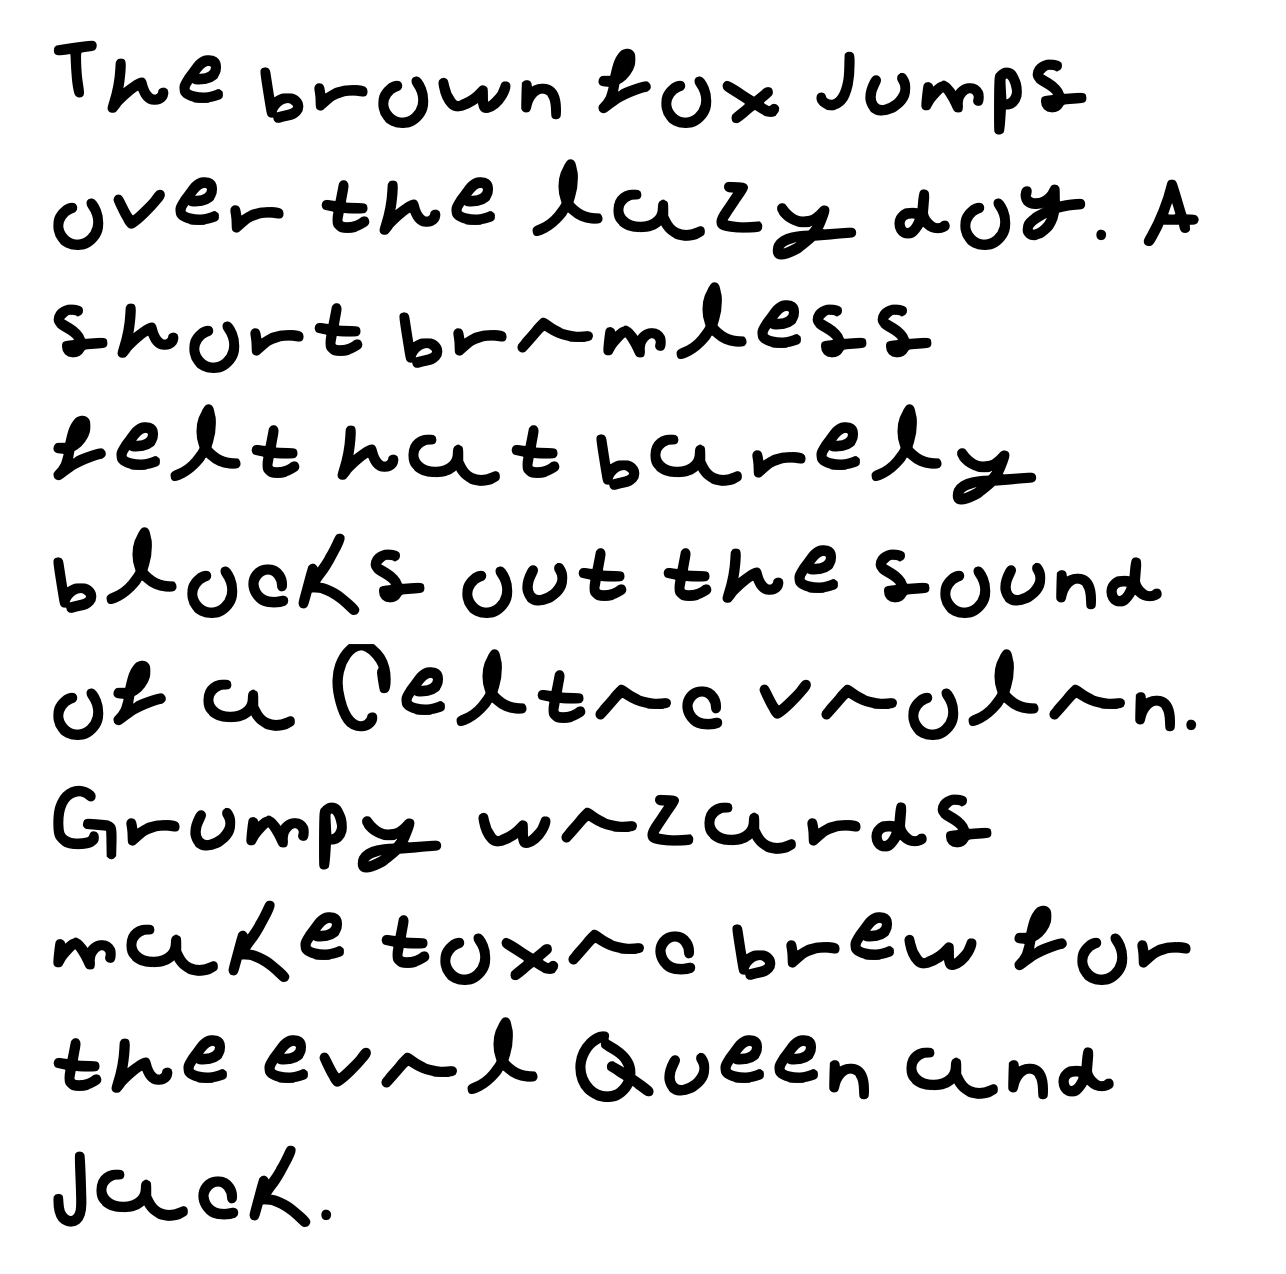 The brown fox jumps
over the lazy dog. A
short brimless
felt hat barely
blocks out the sound
of a Celtic violin.
Grumpy wizards
make toxic brew for
the evil Queen and
Jack.